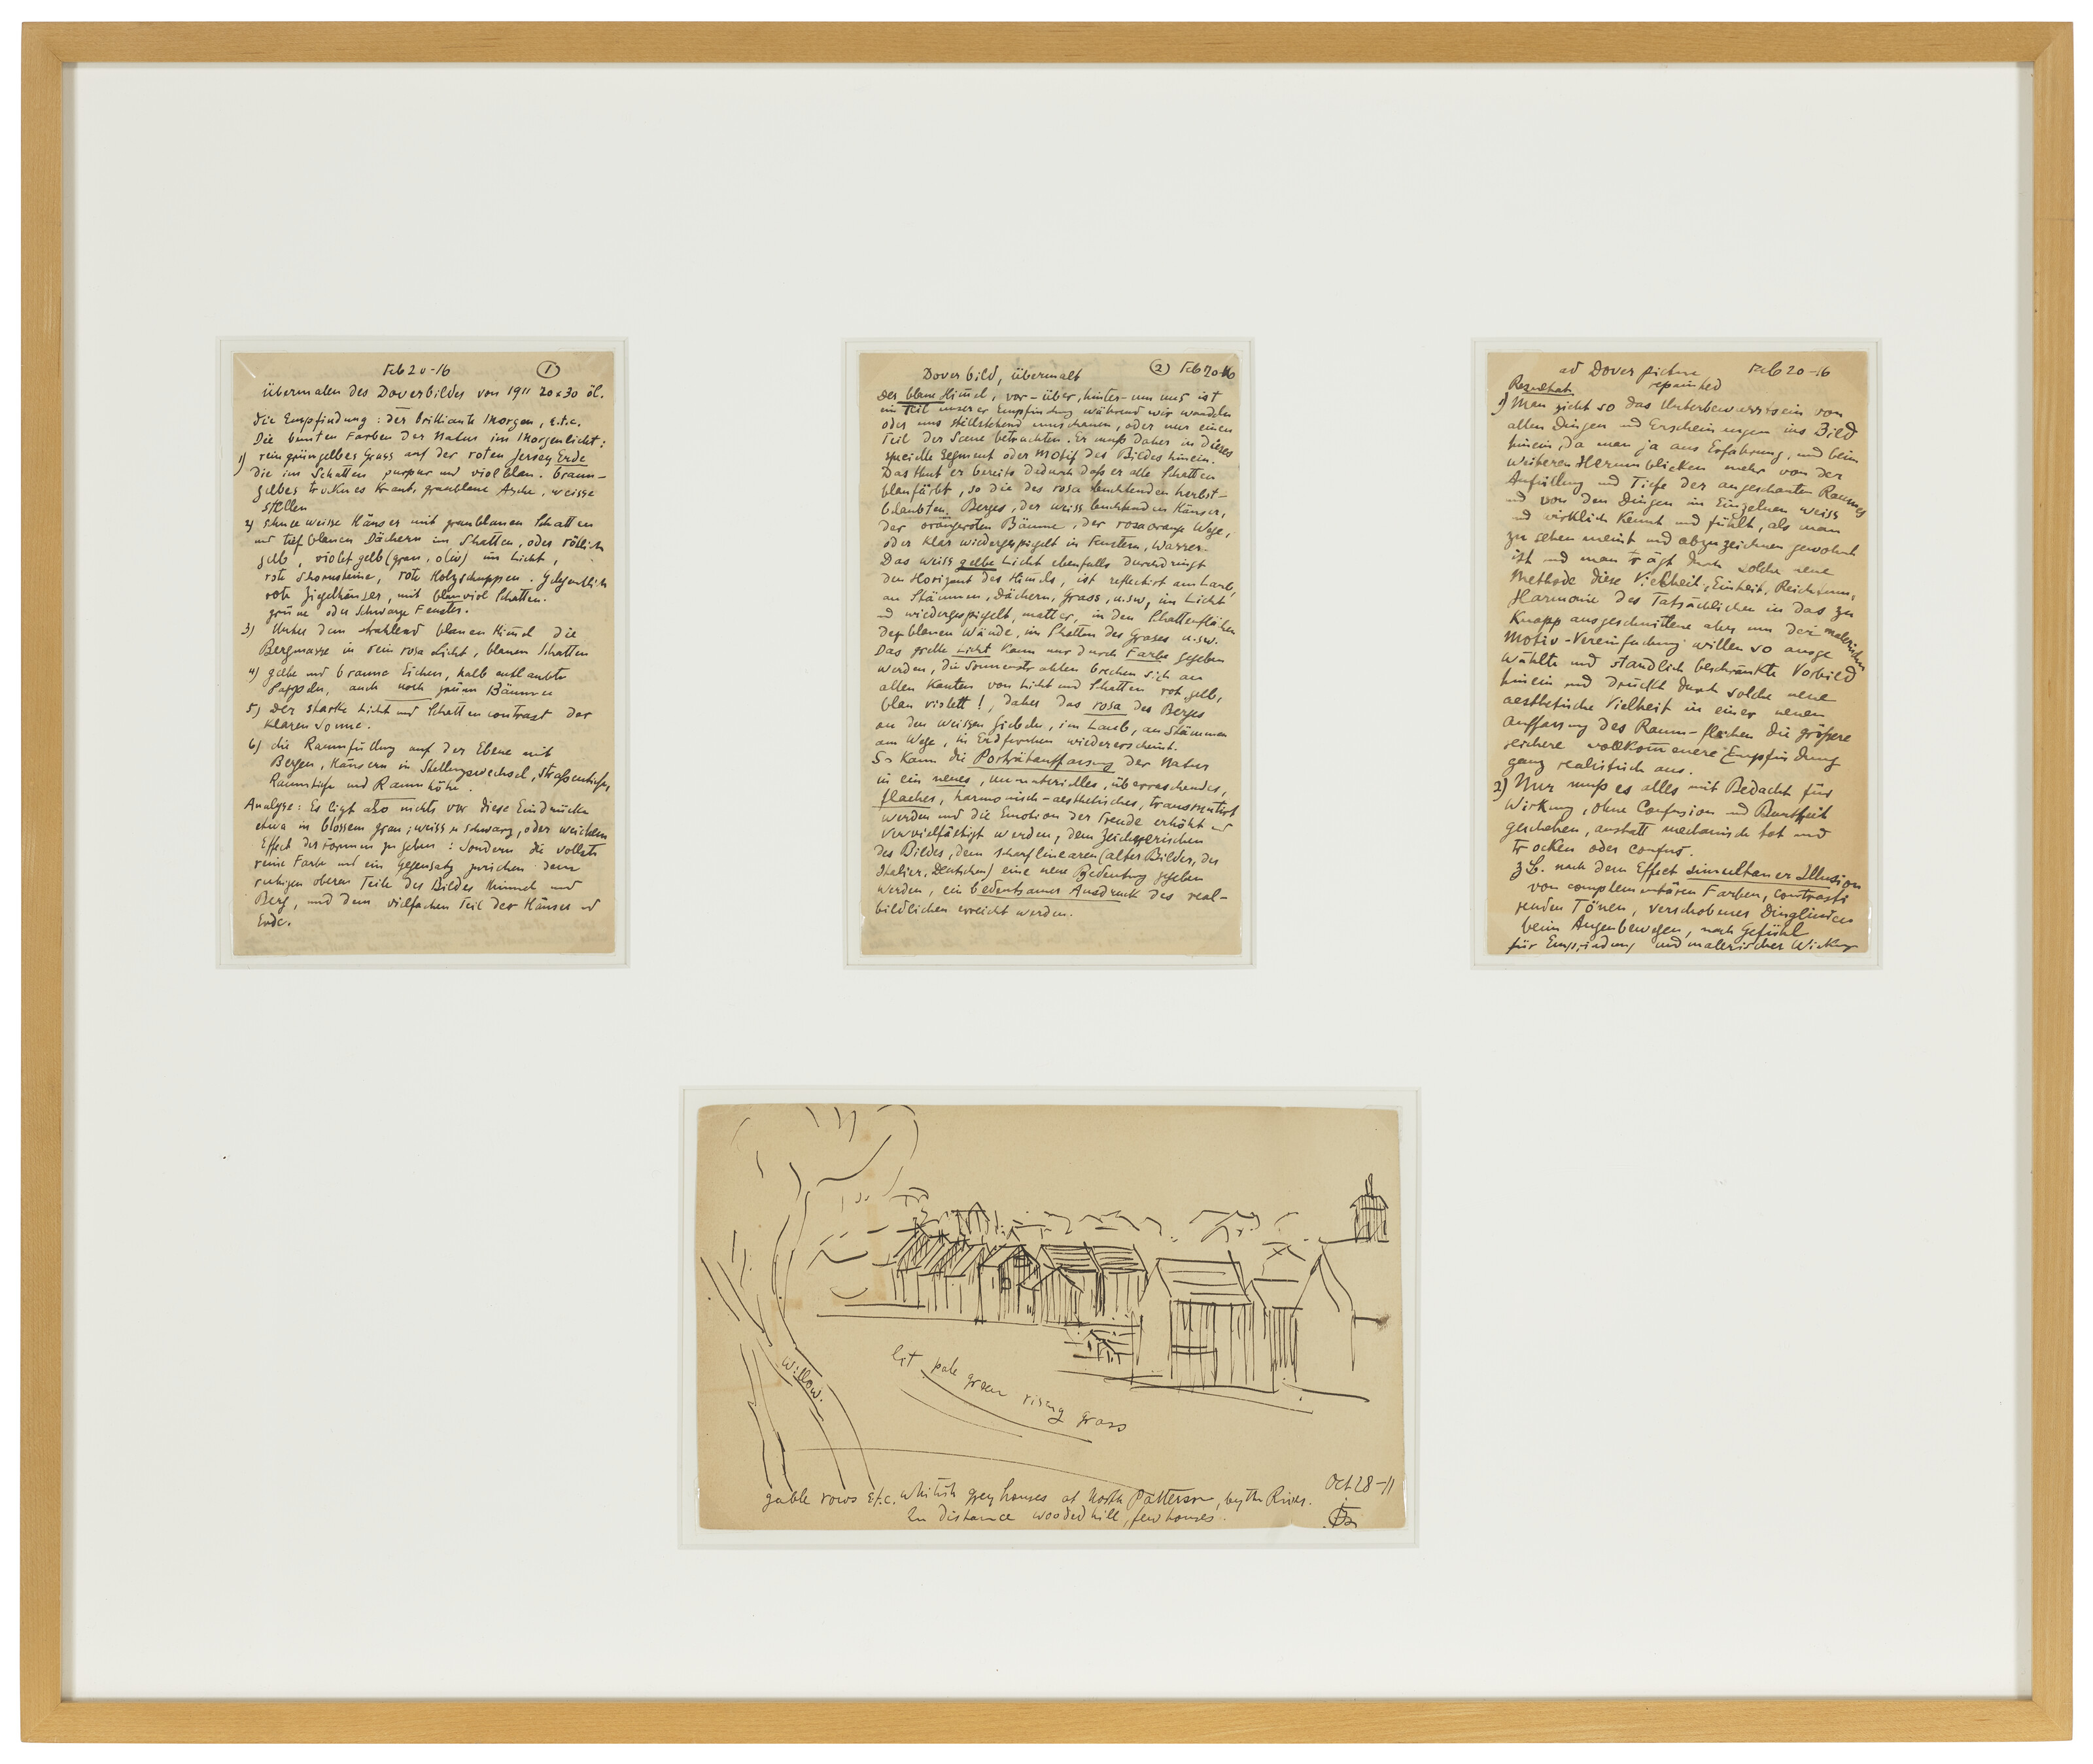 Feb 20-16 1
übermalen des Doverbildes von 1911 20x30 öl.
die Empfindung: der brilliante Morgen, e.t.c.
Die bunten Farben der Natur im Morgenlicht:
1) rein grüngelbes Grass auf der roten Jersey Erde
die im Schatten purpur und viol blau. braun-
gelbes trocknes Kraut, graublaue Asche, weisse
stellen
2) schneeweisse Häuser mit graublauen Schatten
und tiefblauen Dächern im Schatten, oder rötlich
gelb, violet gelb (grau, oliv) im Licht,
rote Schornsteine, rote Holzschuppen. Gelegentlich
rote Ziegelhäuser, mit blauviol Schatten.
grüne oder schwarze Fenster.
3) Unter dem strahlend blauen Himel die
Bergmasse in rein rosa Licht, blauen Schatten
4) gelbe und braune Eichen, halb entlaubte
Pappeln, auch noch grüne Bäume
5) Der starke Licht und Schatten contrast der
klaren Sonne.
6) die Raumfüllung auf der Ebene mit
Bergen, Häusern in Stellungswechsel, Straßentiefe,
Raumtiefe und Raumhöhe.
Analyse: Es ligt also nichts vor diese Eindrücke
etwa in blossem grau, weiss u schwarz, oder weichem
Effect der Formen zu geben: sondern die vollste
reine Farbe und ein Gegensatz zwischen dem
ruhigen oberen Teile des Bildes Himmel und
Berg, und dem vielfachen Teil der Häuser und
Erde.
Doverbild, übermalt 2 Feb 20-16
Der blaue Himel, vor- über, hinter- um uns ist
ein Teil unserer Empfindung während wir wandeln
oder uns stillstehend umschauen, oder nur einen
Teil der Scene betrachten. Er muß daher in dieses
specielle Segment oder Motif des Bildes hinein.
Das thut er bereits dadurch daß er alle Schatten
blaufärbt, so die des rosa leuchtenden herbst-
belaubten Berges, der weiss leuchtenden Häuser,
der orangeroten Bäume, der rosaorange Wege,
oder klar wiedergespiegelt in Fenstern, Wasser.
Das weiss gelbe Licht ebenfalls durchdringt
den Horizont des Himels, ist reflectirt am Laub,
an Stämmen, Dächern, Grass, u.s.w, im Licht
und wiedergespiegelt, matter, in den Schattenflächen
der blauen Wände, im Schatten des Grases u.s.w.
Das grelle Licht kann nur durch Farbe gegeben
werden, die Sonnenstrahlen brechen sich an
allen Kanten von Licht und Schatten rot, gelb,
blau violett!, daher das rosa des Berges
an den weissen Giebeln, im Laub, an Stämmen
am Wege, in Erdfurchen wiedererscheint.
So kann die Porträtauffassung der Natur
in ein neues, unmaterielles, überraschendes,
flaches, harmonisch-aesthetisches, transmutirt
werden und die Emotion der Freude erhöht und
vervielfältigt werden, dem Zeichnerischen
des Bildes, dem scharf linearen (alter Bilder, der
Italier, Deutschen) eine neue Bedeutung gegeben
werden, ein bedeutsamer Ausdruck des real-
bildlichen erreicht werden.
ad Dover picture Feb 20-16
repainted
Resultate
1) Man zieht so das Unterbewusstsein von
allen Dingen und Erscheinungen ins Bild
hinein, da man ja aus Erfahrung, und beim
weiteren Herumblicken mehr von der
Aufüllung und Tiefe der angeschauten Raumes
und von den Dingen im Einzelnen weiss
und wirklich kennt und fühlt, als man
zu sehen meint und abzuzeichnen gewohnt
ist und man trägt durch solche neue
Methode diese Vielheit, Einheit, Reichtum,
Harmonie des Tatsächlichen in das zu
knapp ausgeschnittene aber um der malerischen
Motiv-Vereinfachung willen so ausge
wählte und standlich beschränkte Vorbild
hinein und drückt durch solche neue
aesthetische Vielheit in einer neuen
Auffassung des Raum-flachen die größere
reichere vollkommenere Empfindung
ganz realistisch aus.
2) Nur muß es alles mit Bedacht für
Wirkung, ohne Confusion und Buntheit
geschehen, anstatt mechanisch tot und
trocken oder confus.
z.B. nach dem Effect simultaner Illusion
von complementären Farben, contrasti
renden Tönen, verschobener Dinglinien
beim Augenbewegen, nach Gefühl
für Empfindung und malerischer Wirkung
Willow.
lit pale green rising grass
gable rows etc. whitish grey houses at North Patterson, by the River.
In distance wooded hill, few houses.
Oct 28-11